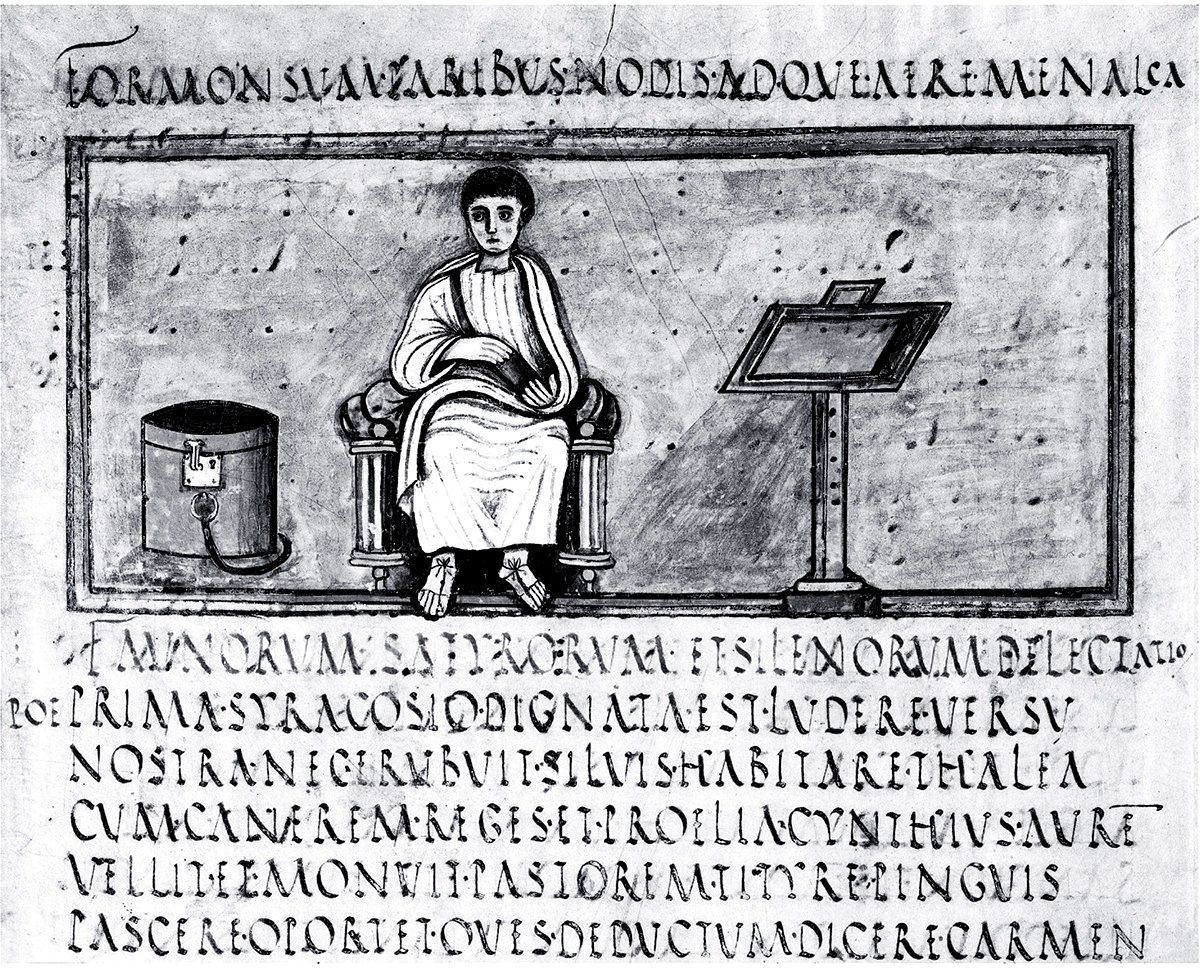 FORMONSUM·PARIBUS·NODIS·ADQUE·AERE·MENALCA
FAUNORUM·SATYRORUM·ET·SILENORUM·DELECTATIO
POE PRIMA·SYRACOSIO·DIGNATA·EST·LUDERE·UERSU
NOSTRA·NEC·ERUBUIT·SILUIS·HABITARE·THALEA
CUM·CANEREM·REGES·ET·PROELIA·CYNTHIUS·AURE̅
UELLIT·ET·MONUIT·PASTOREM·TITYRE·PINGUIS
PASCERE·OPORTET·OUES·DEDUCTUM·DICERE·CARMEN